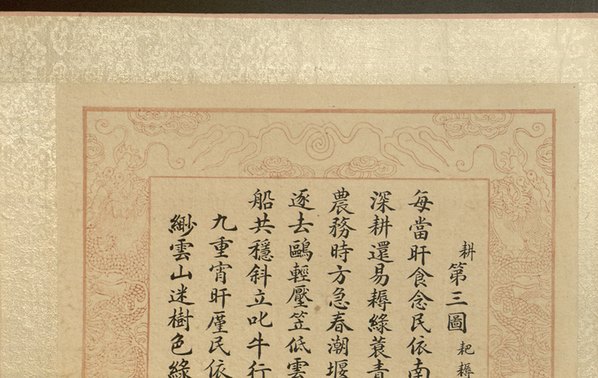 耕
第三圖
耙耨
每當旰食念民依南
深耕還易耨綠蓑青
農務時方急春潮堰
逐去鷗輕壓笠低雲
船共穩斜立叱牛行
九重宵旰廑民依
緲雲山迷樹色綠